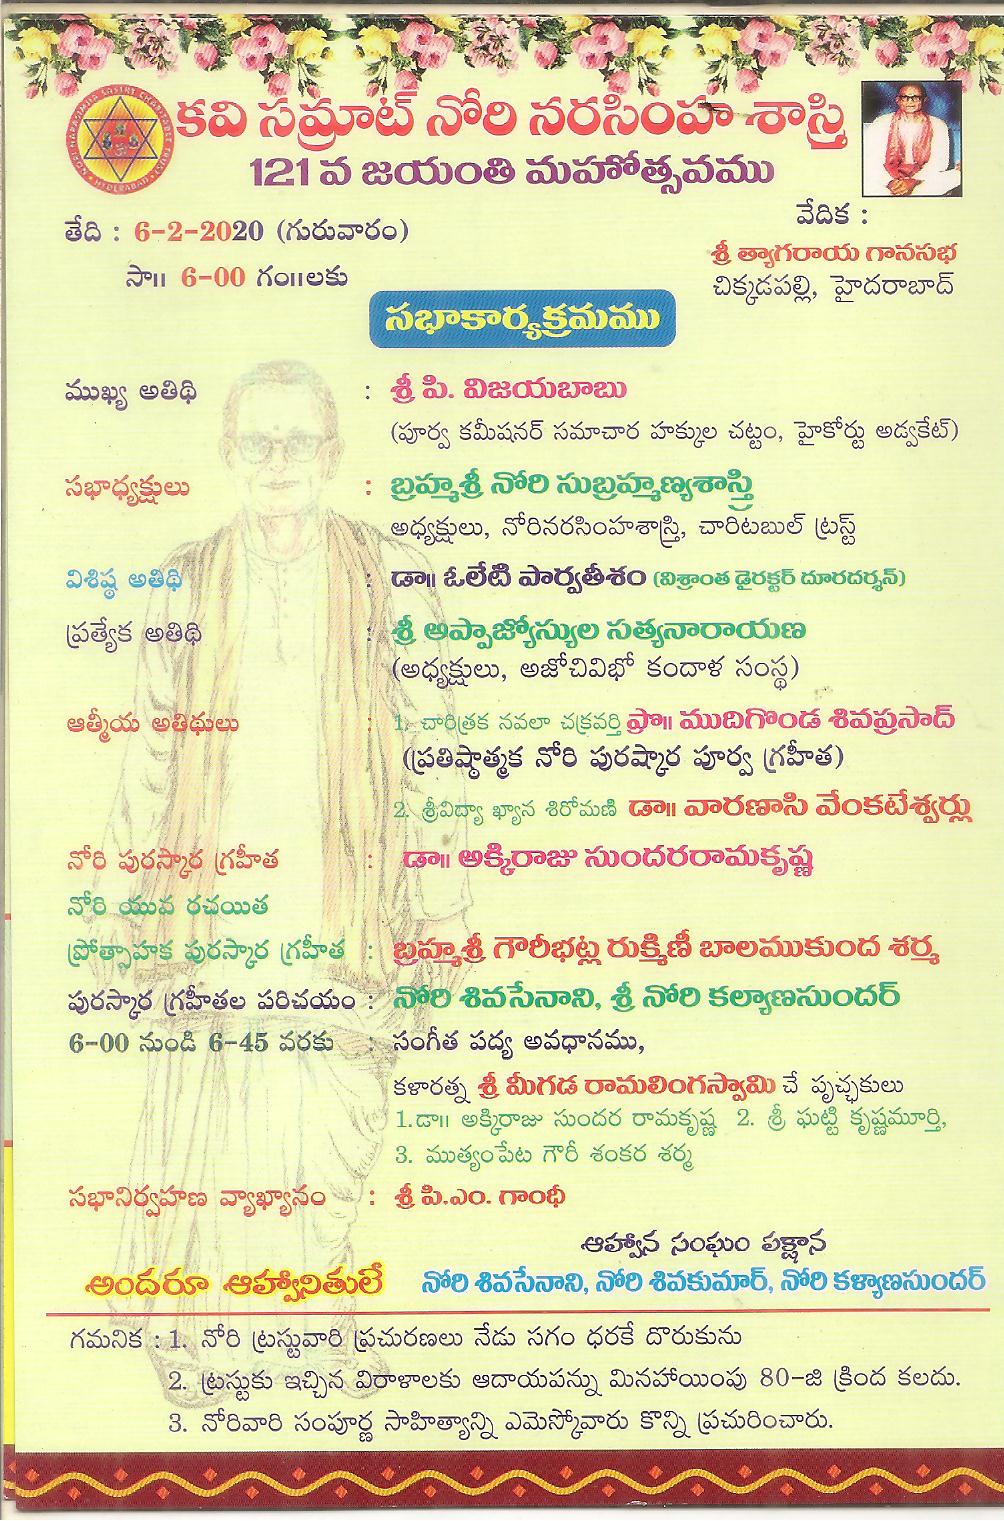 NORI NARASIMHA SASTRY CHARITABLE TRUST
HYDERABAD
కవి సమ్రాట్ నోరి నరసింహ శాస్త్రి
121 వ జయంతి మహోత్సవము
తేది : 6-2-2020 (గురువారం)
సా॥ 6-00 గం॥లకు
వేదిక :
శ్రీ త్యాగరాయ గానసభ
చిక్కడపల్లి, హైదరాబాద్
సభాకార్యక్రమము
ముఖ్య అతిథి : శ్రీ పి. విజయబాబు
(పూర్వ కమీషనర్ సమాచార హక్కుల చట్టం, హైకోర్టు అడ్వకేట్)
సభాధ్యక్షులు : బ్రహ్మశ్రీ నోరి సుబ్రహ్మణ్యశాస్త్రి
అధ్యక్షులు, నోరినరసింహశాస్త్రి, చారిటబుల్ ట్రస్ట్
విశిష్ఠ అతిథి : డా॥ ఓలేటి పార్వతీశం (విశ్రాంత డైరక్టర్ దూరదర్శన్)
ప్రత్యేక అతిథి : శ్రీ అప్పాజ్యోస్యుల సత్యనారాయణ
(అధ్యక్షులు, అజోచివిభో కందాళ సంస్థ)
ఆత్మీయ అతిథులు : 1. చారిత్రక నవలా చక్రవర్తి ప్రొ॥ ముదిగొండ శివప్రసాద్
(ప్రతిష్ఠాత్మక నోరి పురష్కార పూర్వ గ్రహీత)
2. శ్రీవిద్యా ఖ్యాన శిరోమణి డా॥ వారణాసి వేంకటేశ్వర్లు
నోరి పురస్కార గ్రహీత : డా॥ అక్కిరాజు సుందరరామకృష్ణ
నోరి యువ రచయిత
ప్రోత్సాహక పురస్కార గ్రహీత : బ్రహ్మశ్రీ గౌరీభట్ల రుక్మిణీ బాలముకుంద శర్మ
పురస్కార గ్రహీతల పరిచయం : నోరి శివసేనాని, శ్రీ నోరి కల్యాణసుందర్
6-00 నుండి 6-45 వరకు : సంగీత పద్య అవధానము,
కళారత్న శ్రీ మీగడ రామలింగస్వామి చే పృచ్ఛకులు
1.డా॥ అక్కిరాజు సుందర రామకృష్ణ 2. శ్రీ ఘట్టి కృష్ణమూర్తి,
3. ముత్యంపేట గౌరీ శంకర శర్మ
సభానిర్వహణ వ్యాఖ్యానం : శ్రీ పి.ఎం. గాంధీ
ఆహ్వాన సంఘం పక్షాన
అందరూ ఆహ్వానితులే నోరి శివసేనాని, నోరి శివకుమార్, నోరి కళ్యాణసుందర్
గమనిక : 1. నోరి ట్రస్టువారి ప్రచురణలు నేడు సగం ధరకే దొరుకును
2. ట్రస్టుకు ఇచ్చిన విరాళాలకు ఆదాయపన్ను మినహాయింపు 80-జి క్రింద కలదు.
3. నోరివారి సంపూర్ణ సాహిత్యాన్ని ఎమెస్కోవారు కొన్ని ప్రచురించారు.